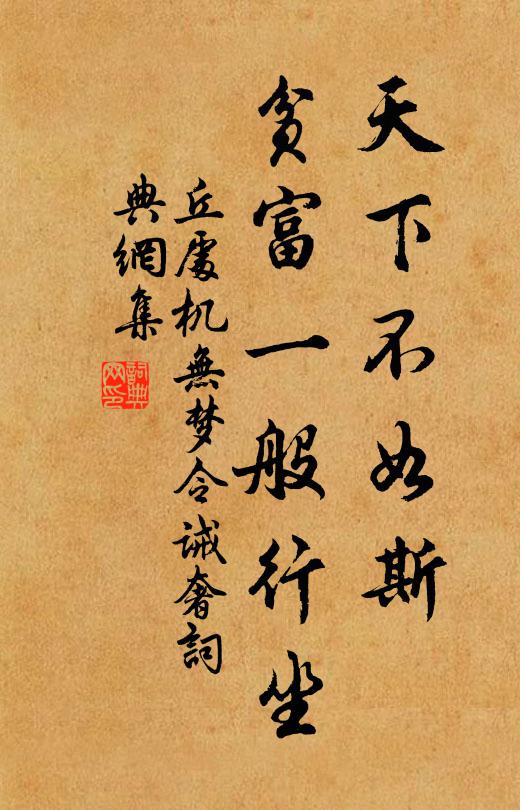 天下不如斯
貧富一般行坐
丘處机無梦令誡奢詞
典網集
詞典網印